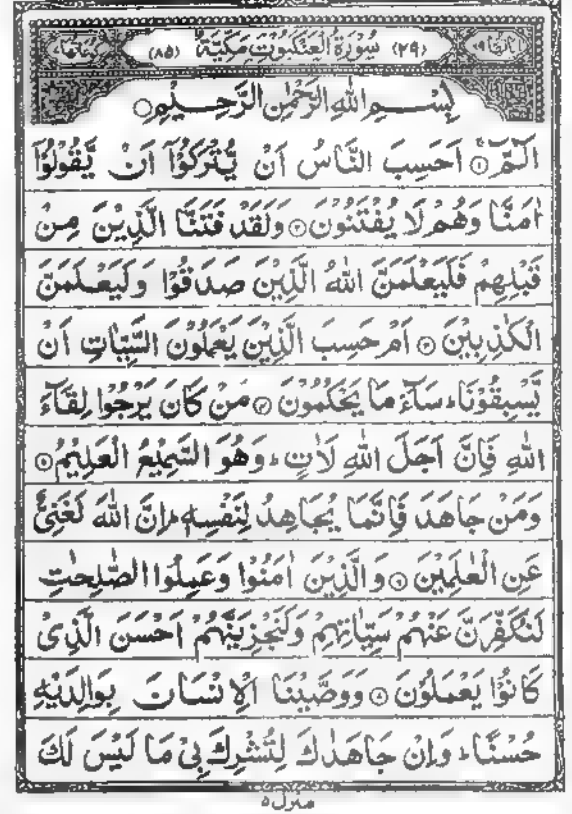 اٰیاتھا ۶۹ (۲۹) سُوْرَةُ الْعَنْكَبُوْتِ مَكِّيَّةٌ (۸۵) رکوعاتھا ۷
بِسْمِ اللهِ الرَّحْمٰنِ الرَّحِيْمِ
الٓمّٓ ۚ﴿۱﴾ اَحَسِبَ النَّاسُ اَنْ يُّتْرَكُوْٓا اَنْ يَّقُوْلُوْٓا
اٰمَنَّا وَهُمْ لَا يُفْتَنُوْنَ ﴿۲﴾ وَلَقَدْ فَتَنَّا الَّذِيْنَ مِنْ
قَبْلِهِمْ فَلَيَعْلَمَنَّ اللهُ الَّذِيْنَ صَدَقُوْا وَلَيَعْلَمَنَّ
الْكٰذِبِيْنَ ﴿۳﴾ اَمْ حَسِبَ الَّذِيْنَ يَعْمَلُوْنَ السَّيِّاٰتِ اَنْ
يَّسْبِقُوْنَا ؕ سَآءَ مَا يَحْكُمُوْنَ ﴿۴﴾ مَنْ كَانَ يَرْجُوْا لِقَآءَ
اللهِ فَاِنَّ اَجَلَ اللهِ لَاٰتٍ ؕ وَهُوَ السَّمِيْعُ الْعَلِيْمُ ﴿۵﴾
وَمَنْ جَاهَدَ فَاِنَّمَا يُجَاهِدُ لِنَفْسِهٖ ؕ اِنَّ اللهَ لَغَنِيٌّ
عَنِ الْعٰلَمِيْنَ ﴿۶﴾ وَالَّذِيْنَ اٰمَنُوْا وَعَمِلُوا الصّٰلِحٰتِ
لَنُكَفِّرَنَّ عَنْهُمْ سَيِّاٰتِهِمْ وَلَنَجْزِيَنَّهُمْ اَحْسَنَ الَّذِيْ
كَانُوْا يَعْمَلُوْنَ ﴿۷﴾ وَوَصَّيْنَا الْاِنْسَانَ بِوَالِدَيْهِ
حُسْنًا ؕ وَاِنْ جَاهَدٰكَ لِتُشْرِكَ بِيْ مَا لَيْسَ لَكَ
منزل ۵